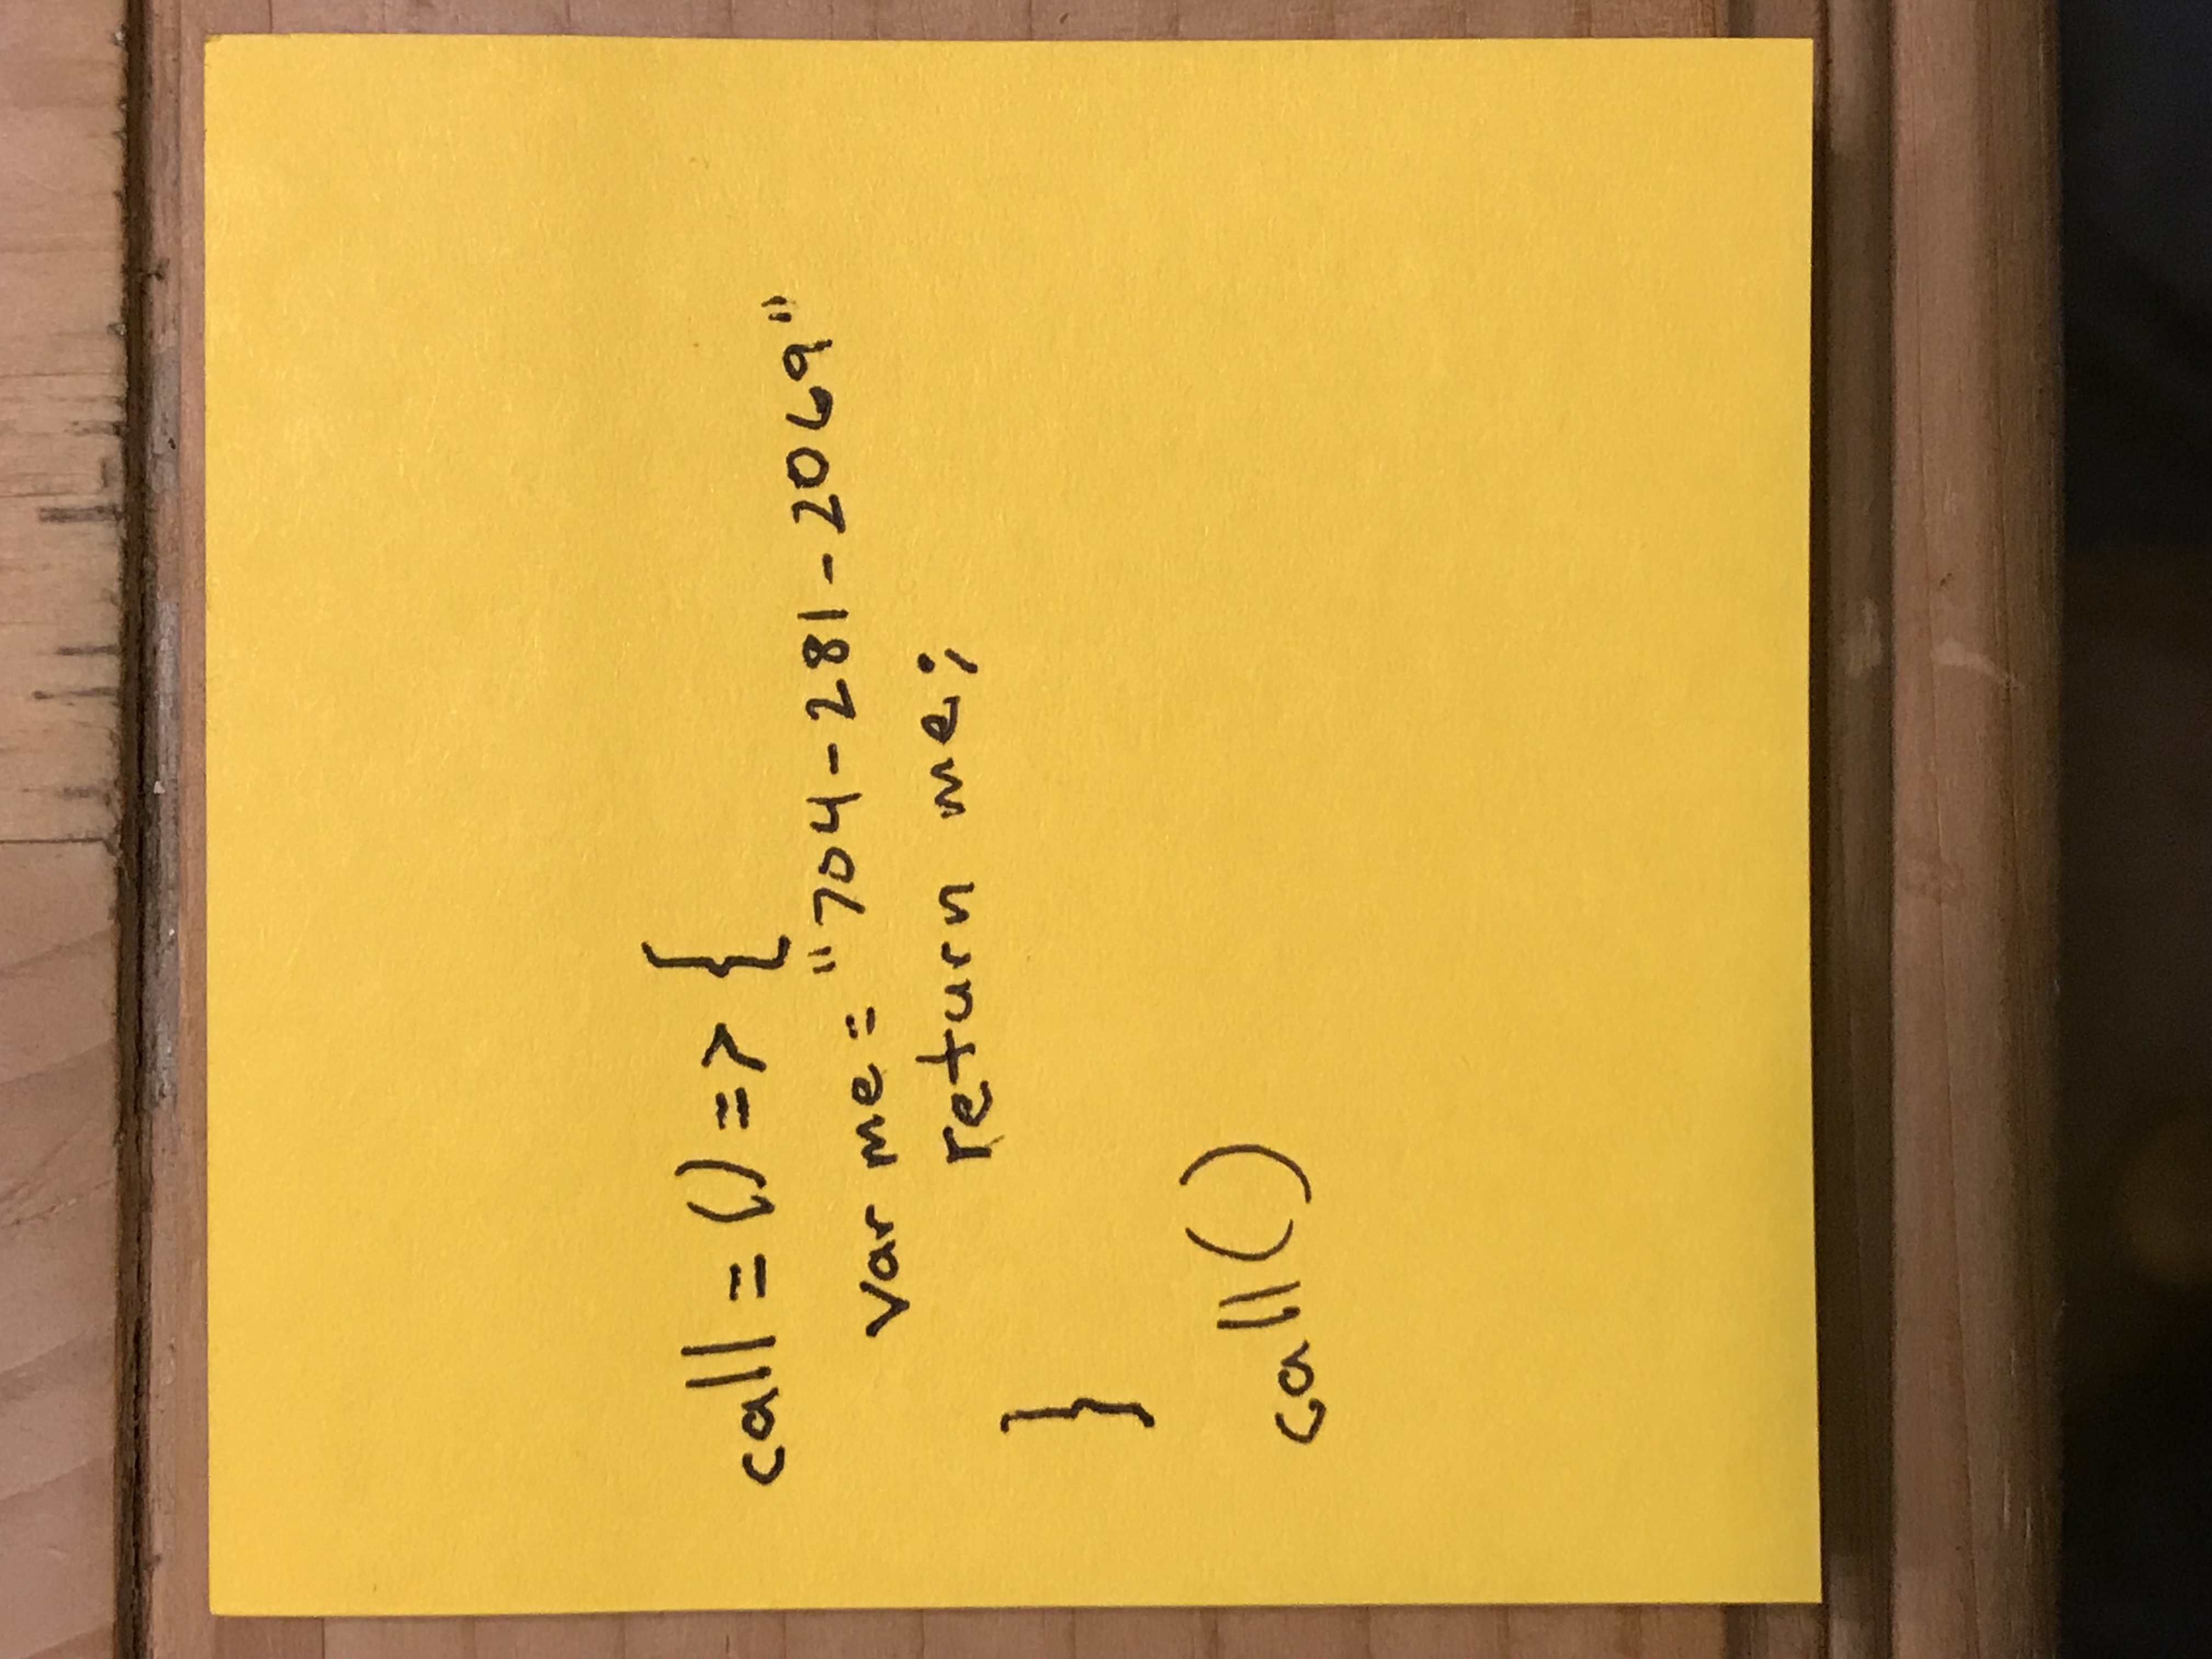 call = () => {
var me = "704-281-2069"
return me;
}
call()